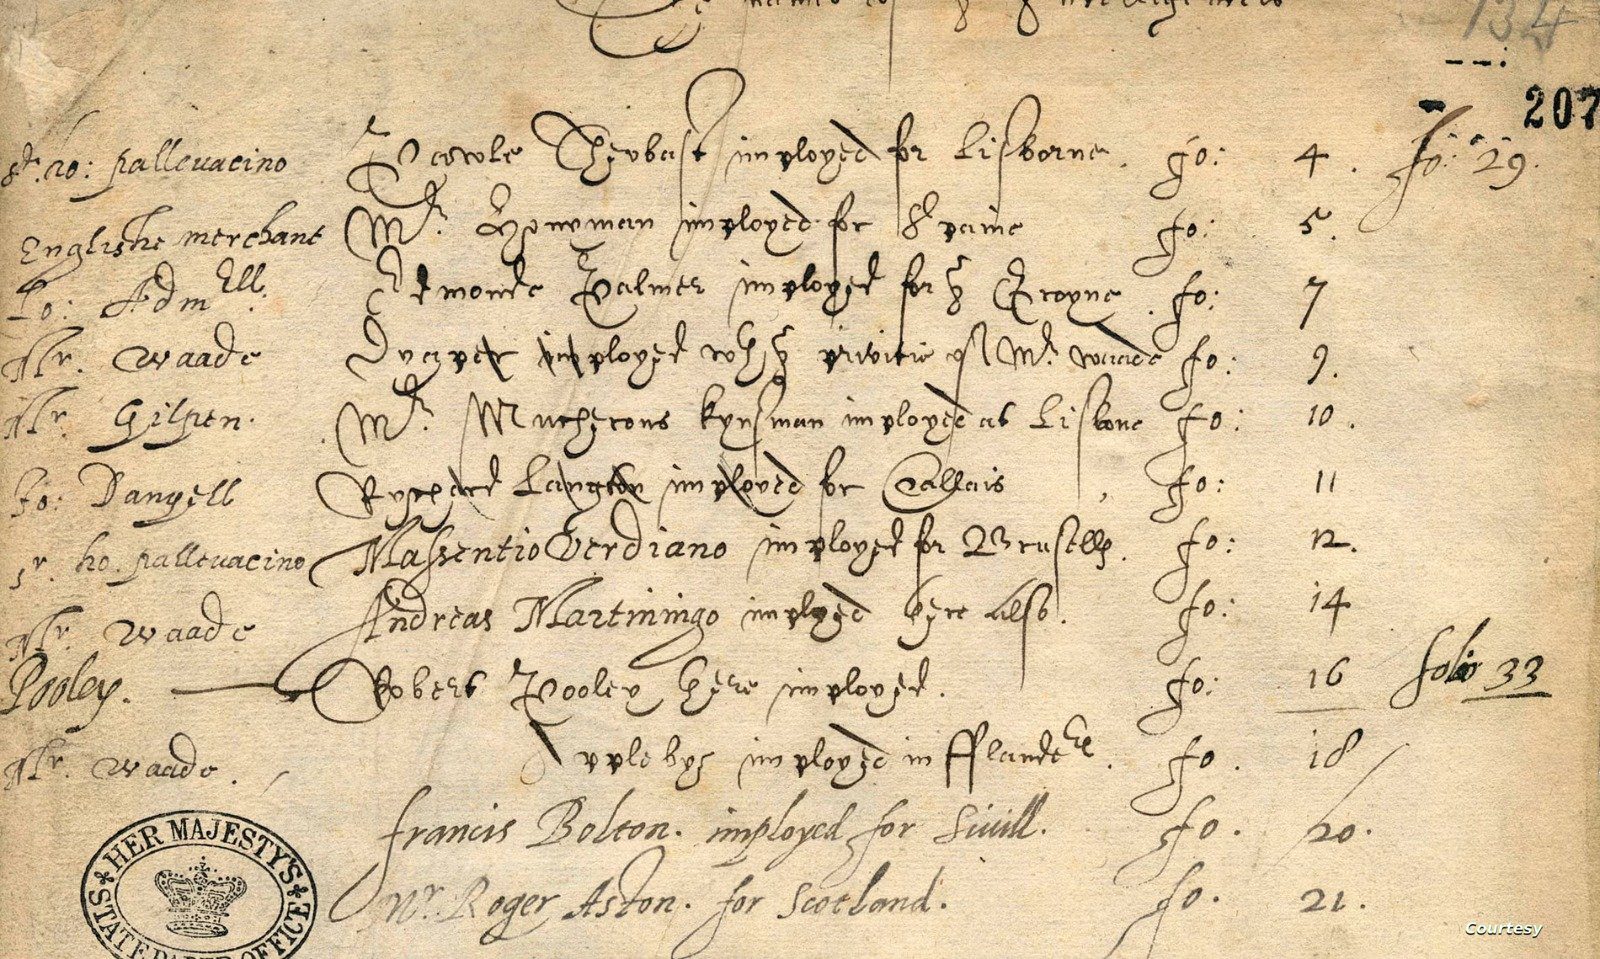 The names of
134
207
Sr. Ho: pallevacino Pawle Theobast imployed for Lisborne. fo: 4. fo: 29.
Englishe merchant Mr. Honyman imployed for Spaine fo: 5.
Lo: Admell. Edmonde Palmer imployed for ye Groyne. fo: 7
Mr. Waade Draper imployed wth ye privitie of Mr. Waade fo: 9.
Mr. Gilpen. Mr. Mucherons kynsman imployed at Lisbone fo: 10.
Jo: Danyell Rychard Langton imployed for Callais fo: 11
Sr. ho. pallevacino Massentio Verdiano imployed for Brusells. fo: 12.
Mr. Waade Andreas Martiningo imployed here also. fo: 14
Pooley. Robert Pooley here imployed. fo: 16 folio 33
Mr. Waade. Applebye imployed in fflanders. fo. 18
francis Bolton. imployed for Sivill. fo. 20.
Mr. Roger Aston. for Scotland. fo. 21.
HER MAJESTY'S STATE PAPER OFFICE
Courtesy